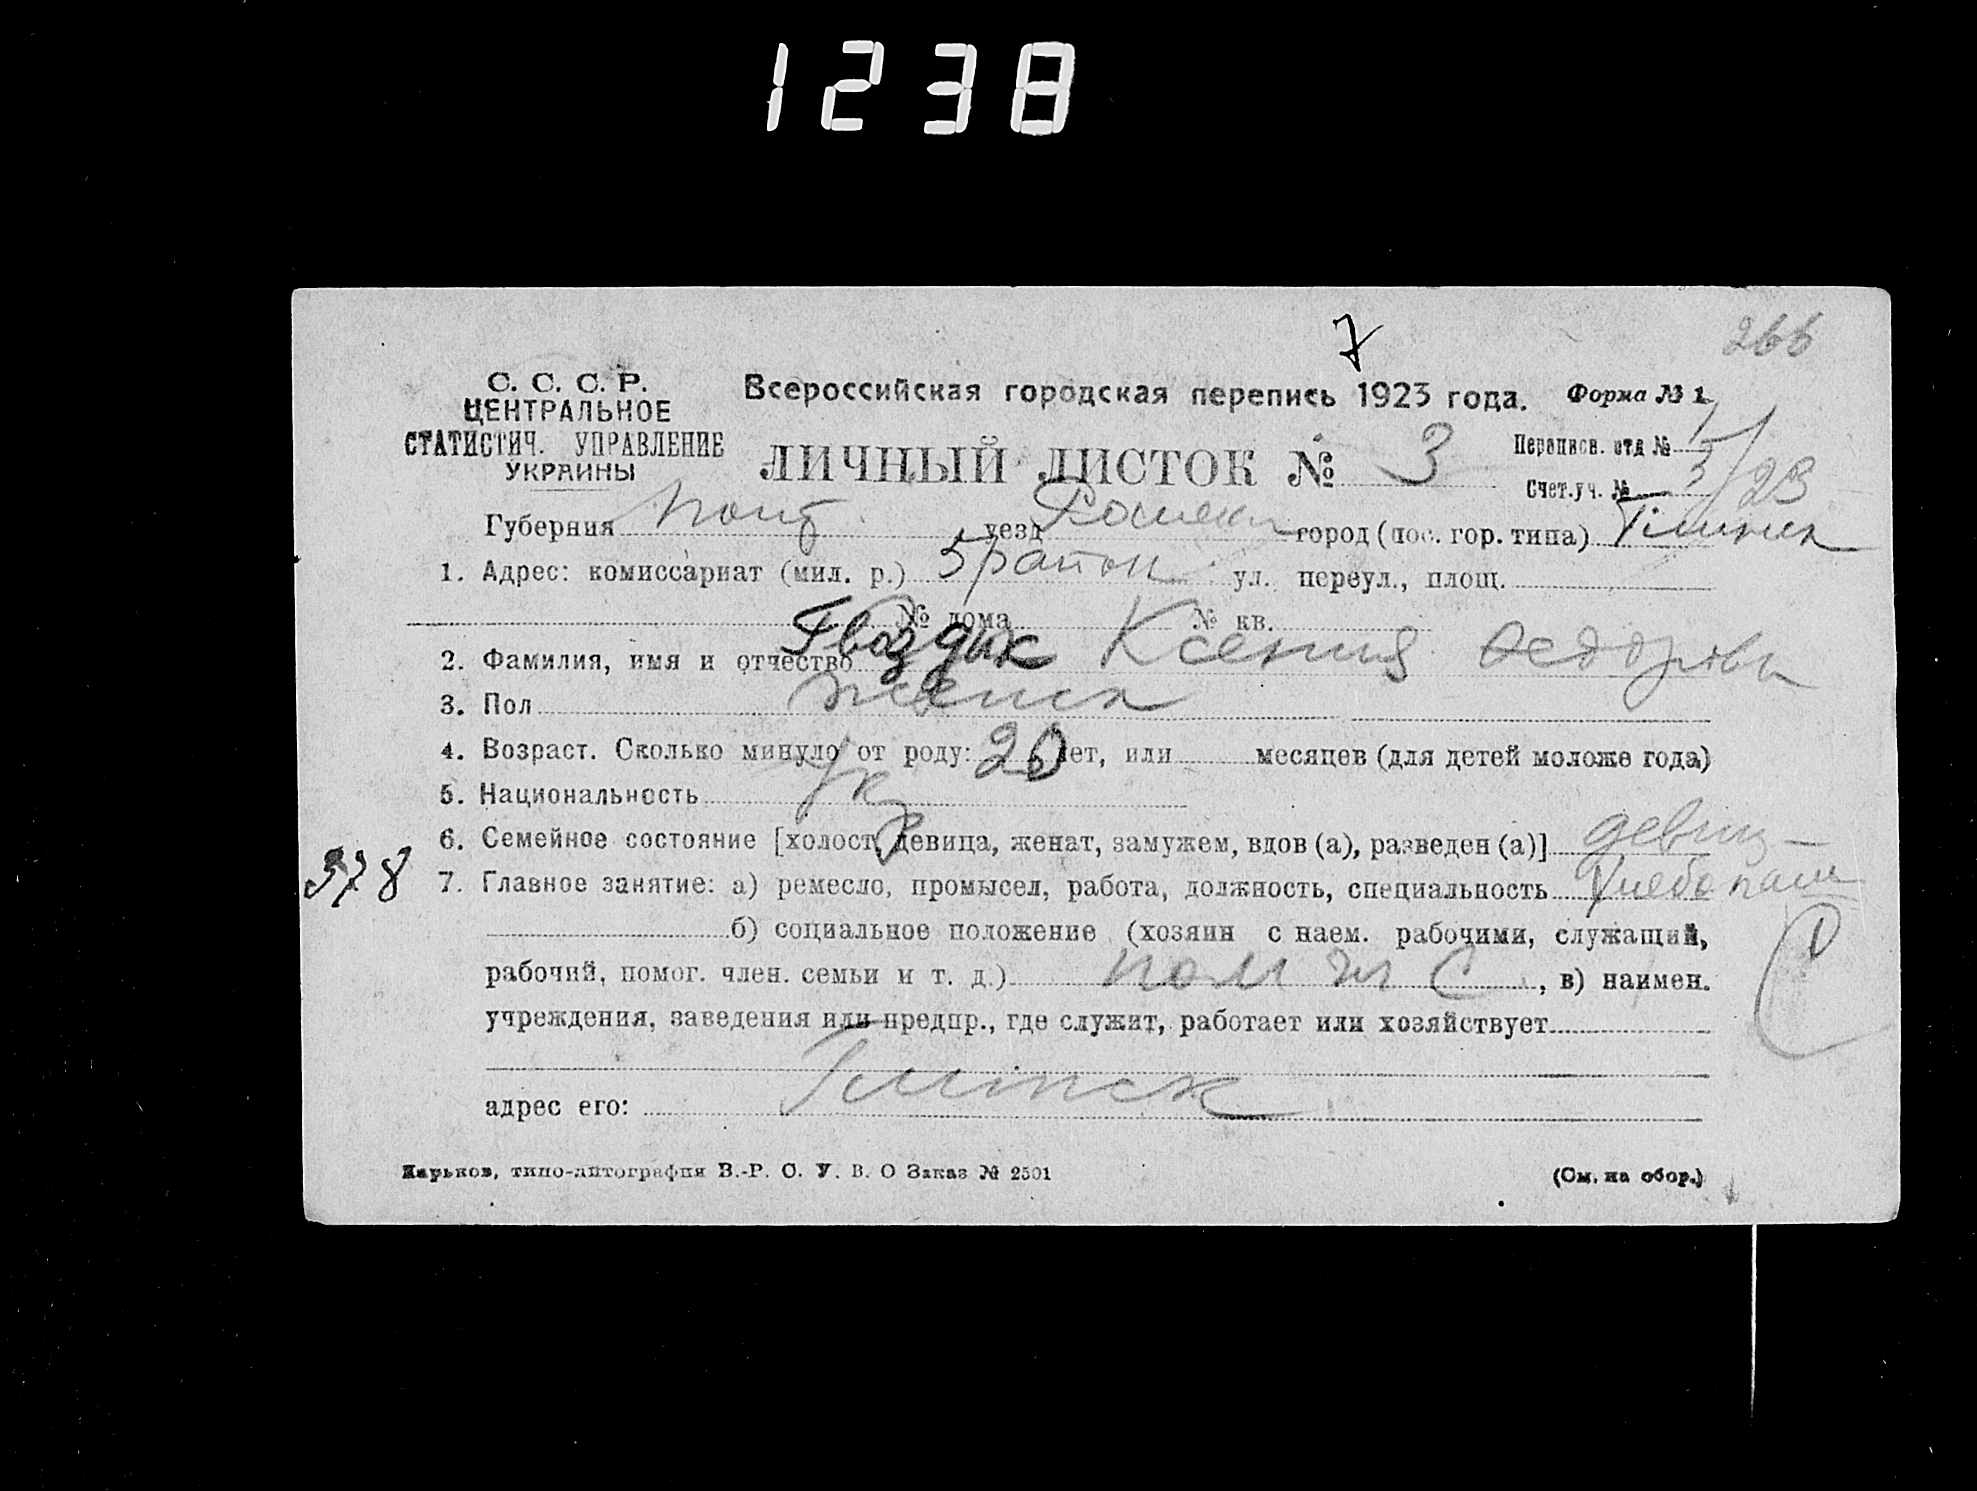 1238
7
266
С. С. С. Р.
ЦЕНТРАЛЬНОЕ
СТАТИСТИЧ. УПРАВЛЕНИЕ
УКРАИНЫ
Всероссийская городская перепись 1923 года. Форма № 1
ЛИЧНЫЙ ЛИСТОК № 3
Переписн. отд №
Счет.уч. № 3/23
Губерния Полт уезд Роменск город (пос. гор. типа) Глинск
1. Адрес: комиссариат (мил. р.) 5 район ул. переул., площ.
№ дома № кв.
2. Фамилия, имя и отчество Гвоздик Ксения Федоровн
3. Пол женск
4. Возраст. Сколько минуло от роду: 20 лет, или месяцев (для детей моложе года)
5. Национальность Укр
6. Семейное состояние [холост, девица, женат, замужем, вдов (а), разведен (а)] девиц
378
7. Главное занятие: а) ремесло, промысел, работа, должность, специальность Хлебопаш
б) социальное положение (хозяин с наем. рабочими, служащий,
рабочий, помог. член. семьи и т. д.) пом чл С, в) наимен.
учреждения, заведения или предпр., где служит, работает или хозяйствует
адрес его: Глинск
Харьков, типо-литография В.-Р. С. У. В. О Заказ № 2501
(См. на обор.)